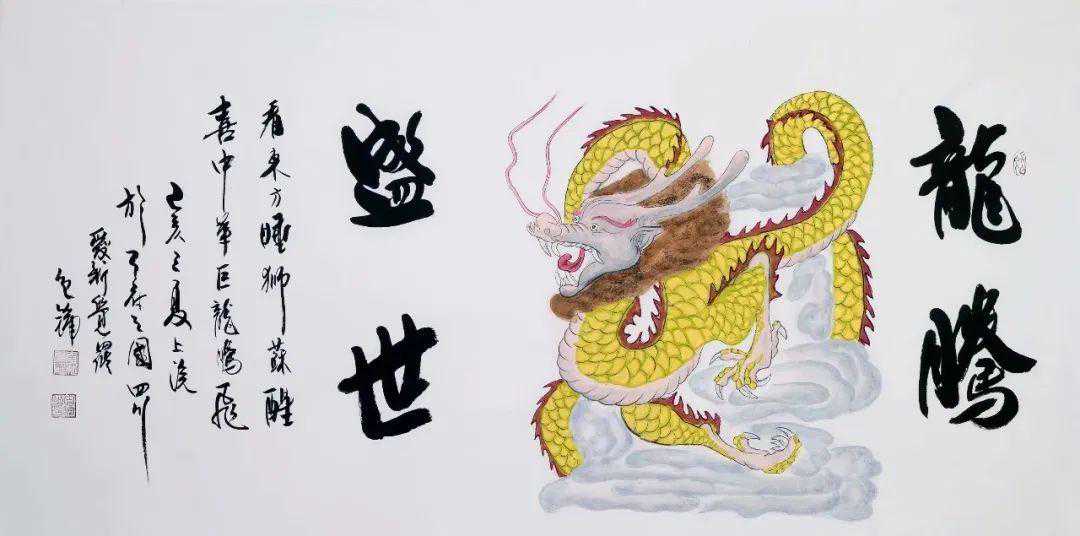 龍騰
盛世
看東方睡獅蘇醒
喜中華巨龍騰飛
己亥之夏上浣
於天府之國四川
愛新覺羅